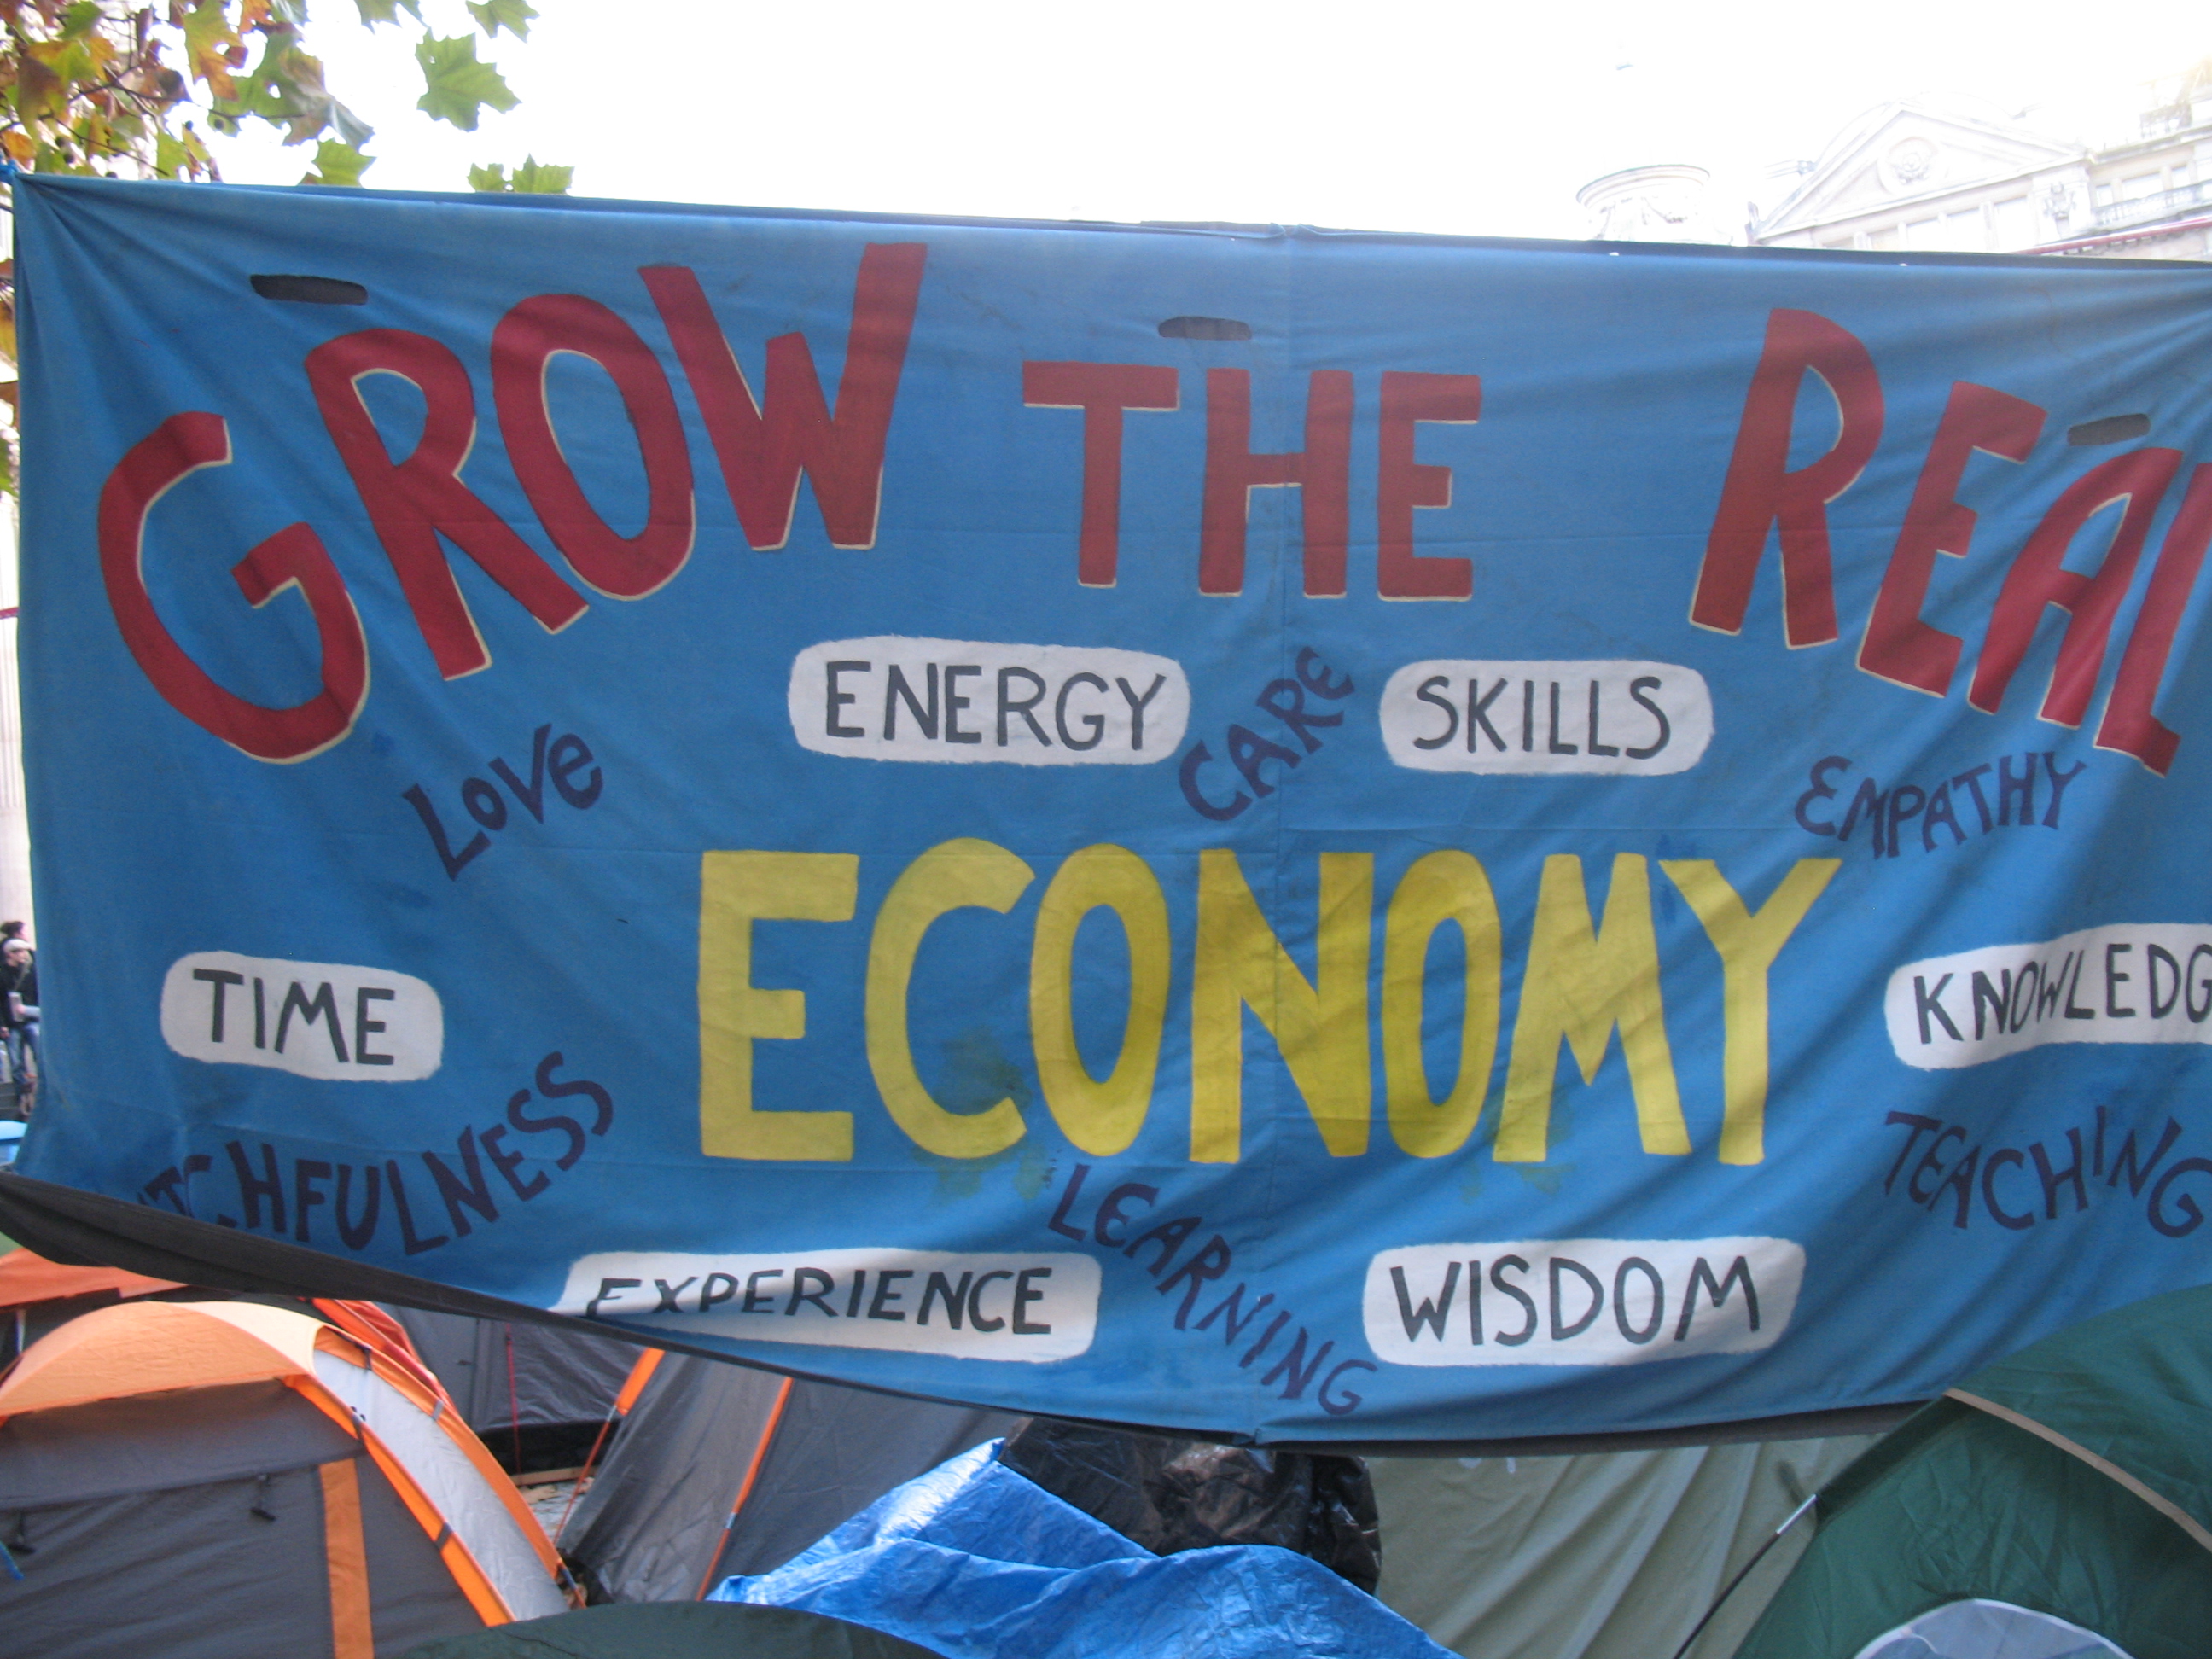 GROW THE REAL
ENERGY
CARE
SKILLS
LOVE
EMPATHY
ECONOMY
TIME
KNOWLEDG
TCHFULNESS
LEARNING
TEACHING
EXPERIENCE
WISDOM